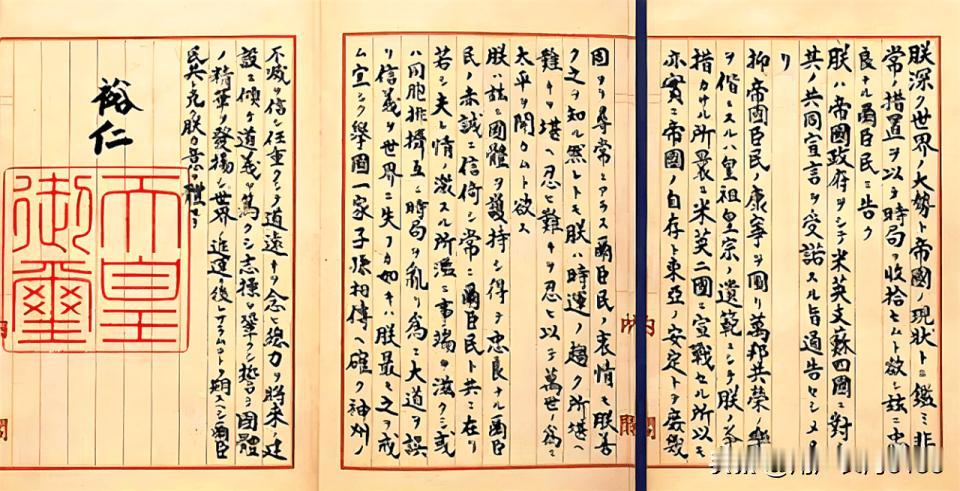 朕深ク世界ノ大勢ト帝國ノ現狀トニ鑑ミ非
常ノ措置ヲ以テ時局ヲ收拾セムト欲シ茲ニ忠
良ナル爾臣民ニ告ク
朕ハ帝國政府ヲシテ米英支蘇四國ニ對シ
其ノ共同宣言ヲ受諾スル旨通告セシメタ
リ
抑帝國臣民ノ康寧ヲ圖リ萬邦共榮ノ樂
ヲ偕ニスルハ皇祖皇宗ノ遺範ニシテ朕ノ拳
措カサル所曩ニ米英二國ニ宣戰セル所以モ
亦實ニ帝國ノ自存ト東亞ノ安定トヲ庶幾
固ヨリ尋常ニアラス爾臣民ノ衷情モ朕善
ク之ヲ知ル然レトモ朕ハ時運ノ趨ク所堪ヘ
難キヲ堪ヘ忍ヒ難キヲ忍ヒ以テ萬世ノ爲ニ
太平ヲ開カムト欲ス
朕ハ茲ニ國體ヲ護持シ得テ忠良ナル爾臣
民ノ赤誠ニ信倚シ常ニ爾臣民ト共ニ在リ
若シ夫レ情ノ激スル所濫ニ事端ヲ滋クシ或
ハ同胞排擠互ニ時局ヲ亂リ爲ニ大道ヲ誤
リ信義ヲ世界ニ失フカ如キハ朕最モ之ヲ戒
ム宜シク擧國一家子孫相傳ヘ確ク神州ノ
不滅ヲ信シ任重クシテ道遠キヲ念ヒ總力ヲ將來ノ建
設ニ傾ケ道義ヲ篤クシ志操ヲ鞏クシ誓テ國體
ノ精華ヲ發揚シ世界ノ進運ニ後レサラムコトヲ期スヘシ爾臣
民其レ克ク朕カ意ヲ體セヨ
裕仁
天皇
御璽